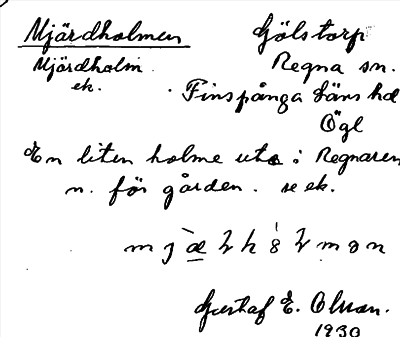 Mjärdholmen Gölstorp
Mjärdholm Regna sn.
ek. Finspånga läns hd
Ögl
En liten holme ute i Regnaren
n. för gården. se ek.
Gustaf E. Olsson.
1930